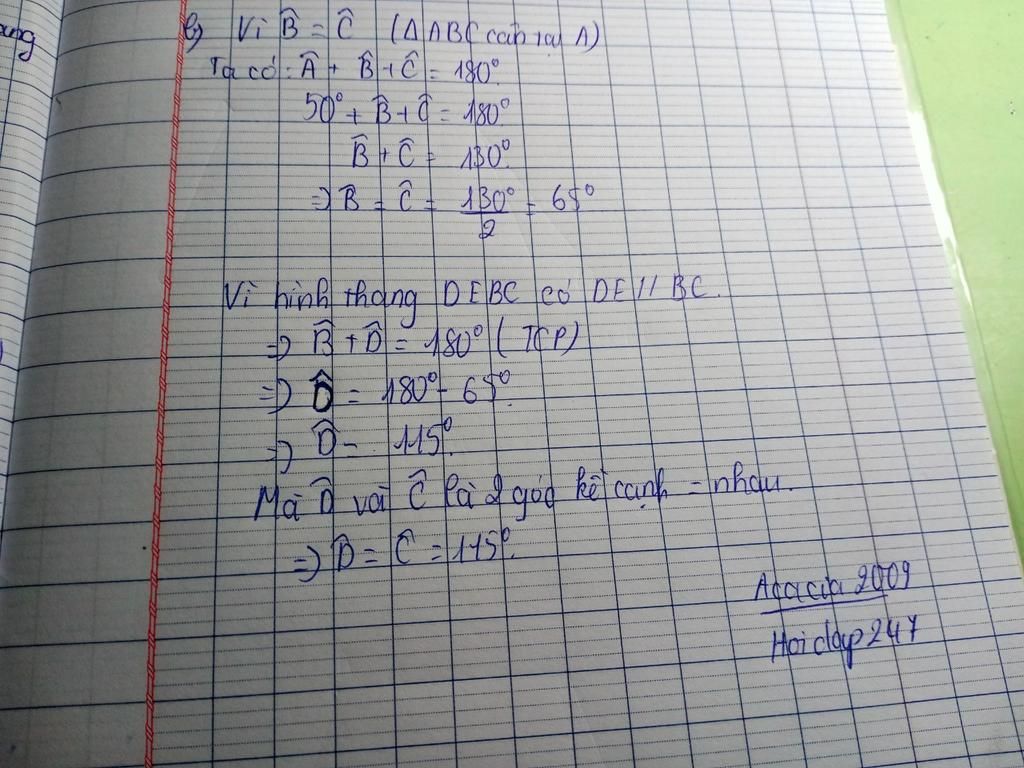 b) Vì B̂ = Ĉ (ΔABC cân tại A)
Ta có: Â + B̂ + Ĉ = 180°.
50° + B̂ + Ĉ = 180°.
B̂ + Ĉ = 130°.
=> B̂ = Ĉ = 130°/2 = 65°
Vì hình thang DEBC có DE // BC.
=> B̂ + D̂ = 180° (TCP)
=> D̂ = 180° - 65°.
=> D̂ = 115°.
Mà D̂ và Ĉ là 2 góc kề cạnh = nhau.
=> D̂ = Ĉ = 115°.
Acacia 2009
Hoidap247